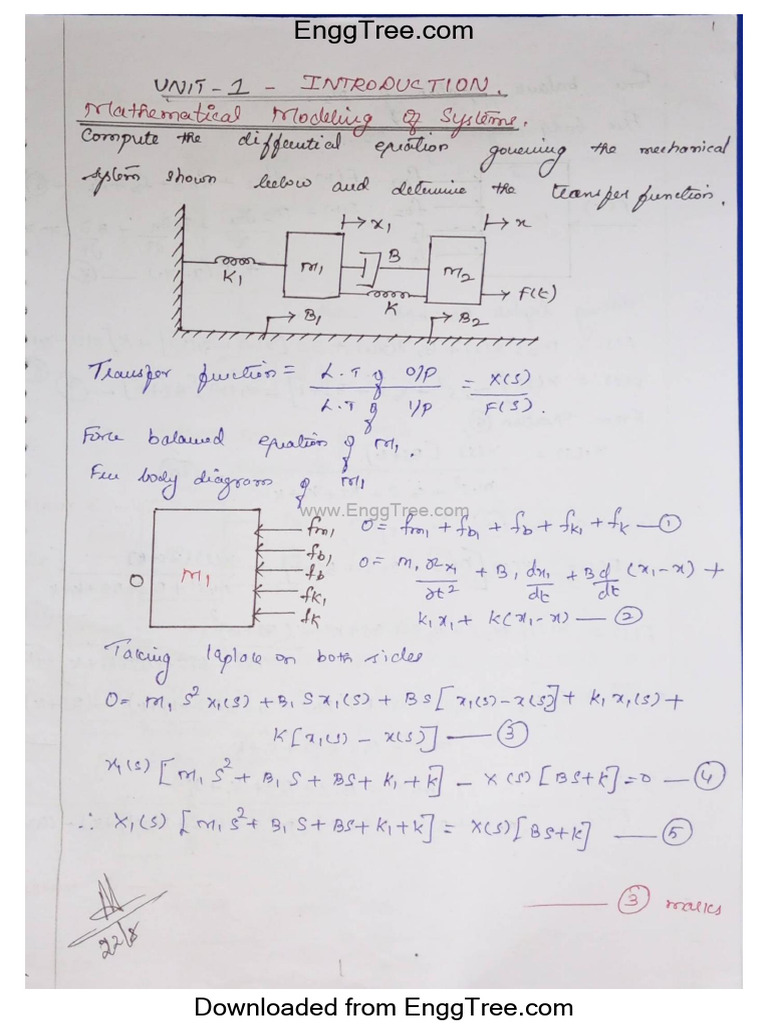 EnggTree.com
1
UNIT-1 - INTRODUCTION.
Mathematical Modeling of Systems.
Compute the differential equation governing the mechanical
system shown below and determine the transfer function.
x1 x
K1 M1 B M2
K F(t)
B1 B2
Transfer function = L.T of O/P / L.T of I/P = X(S) / F(S).
Force balanced equation of M1.
Free body diagram of M1
www.EnggTree.com
0 M1 fm1 fb1 fb fk1 fk
0 = fm1 + fb1 + fb + fk1 + fk — ①
0 = M1 d²x1/dt² + B1 dx1/dt + B d/dt (x1-x) +
k1x1 + k(x1-x) — ②
Taking laplace on both sides
0 = M1 S² x1(s) + B1 S x1(s) + BS[x1(s)-x(s)] + k1 x1(s) +
K[x1(s) - x(s)] — ③
x1(s) [M1S² + B1S + BS + K1 + k] - X(s) [BS+k] = 0 — ④
∴ X1(s) [M1S² + B1S + BS + K1 + k] = X(s) [BS+k] — ⑤
— ③ marks
22/8
1
Downloaded from EnggTree.com